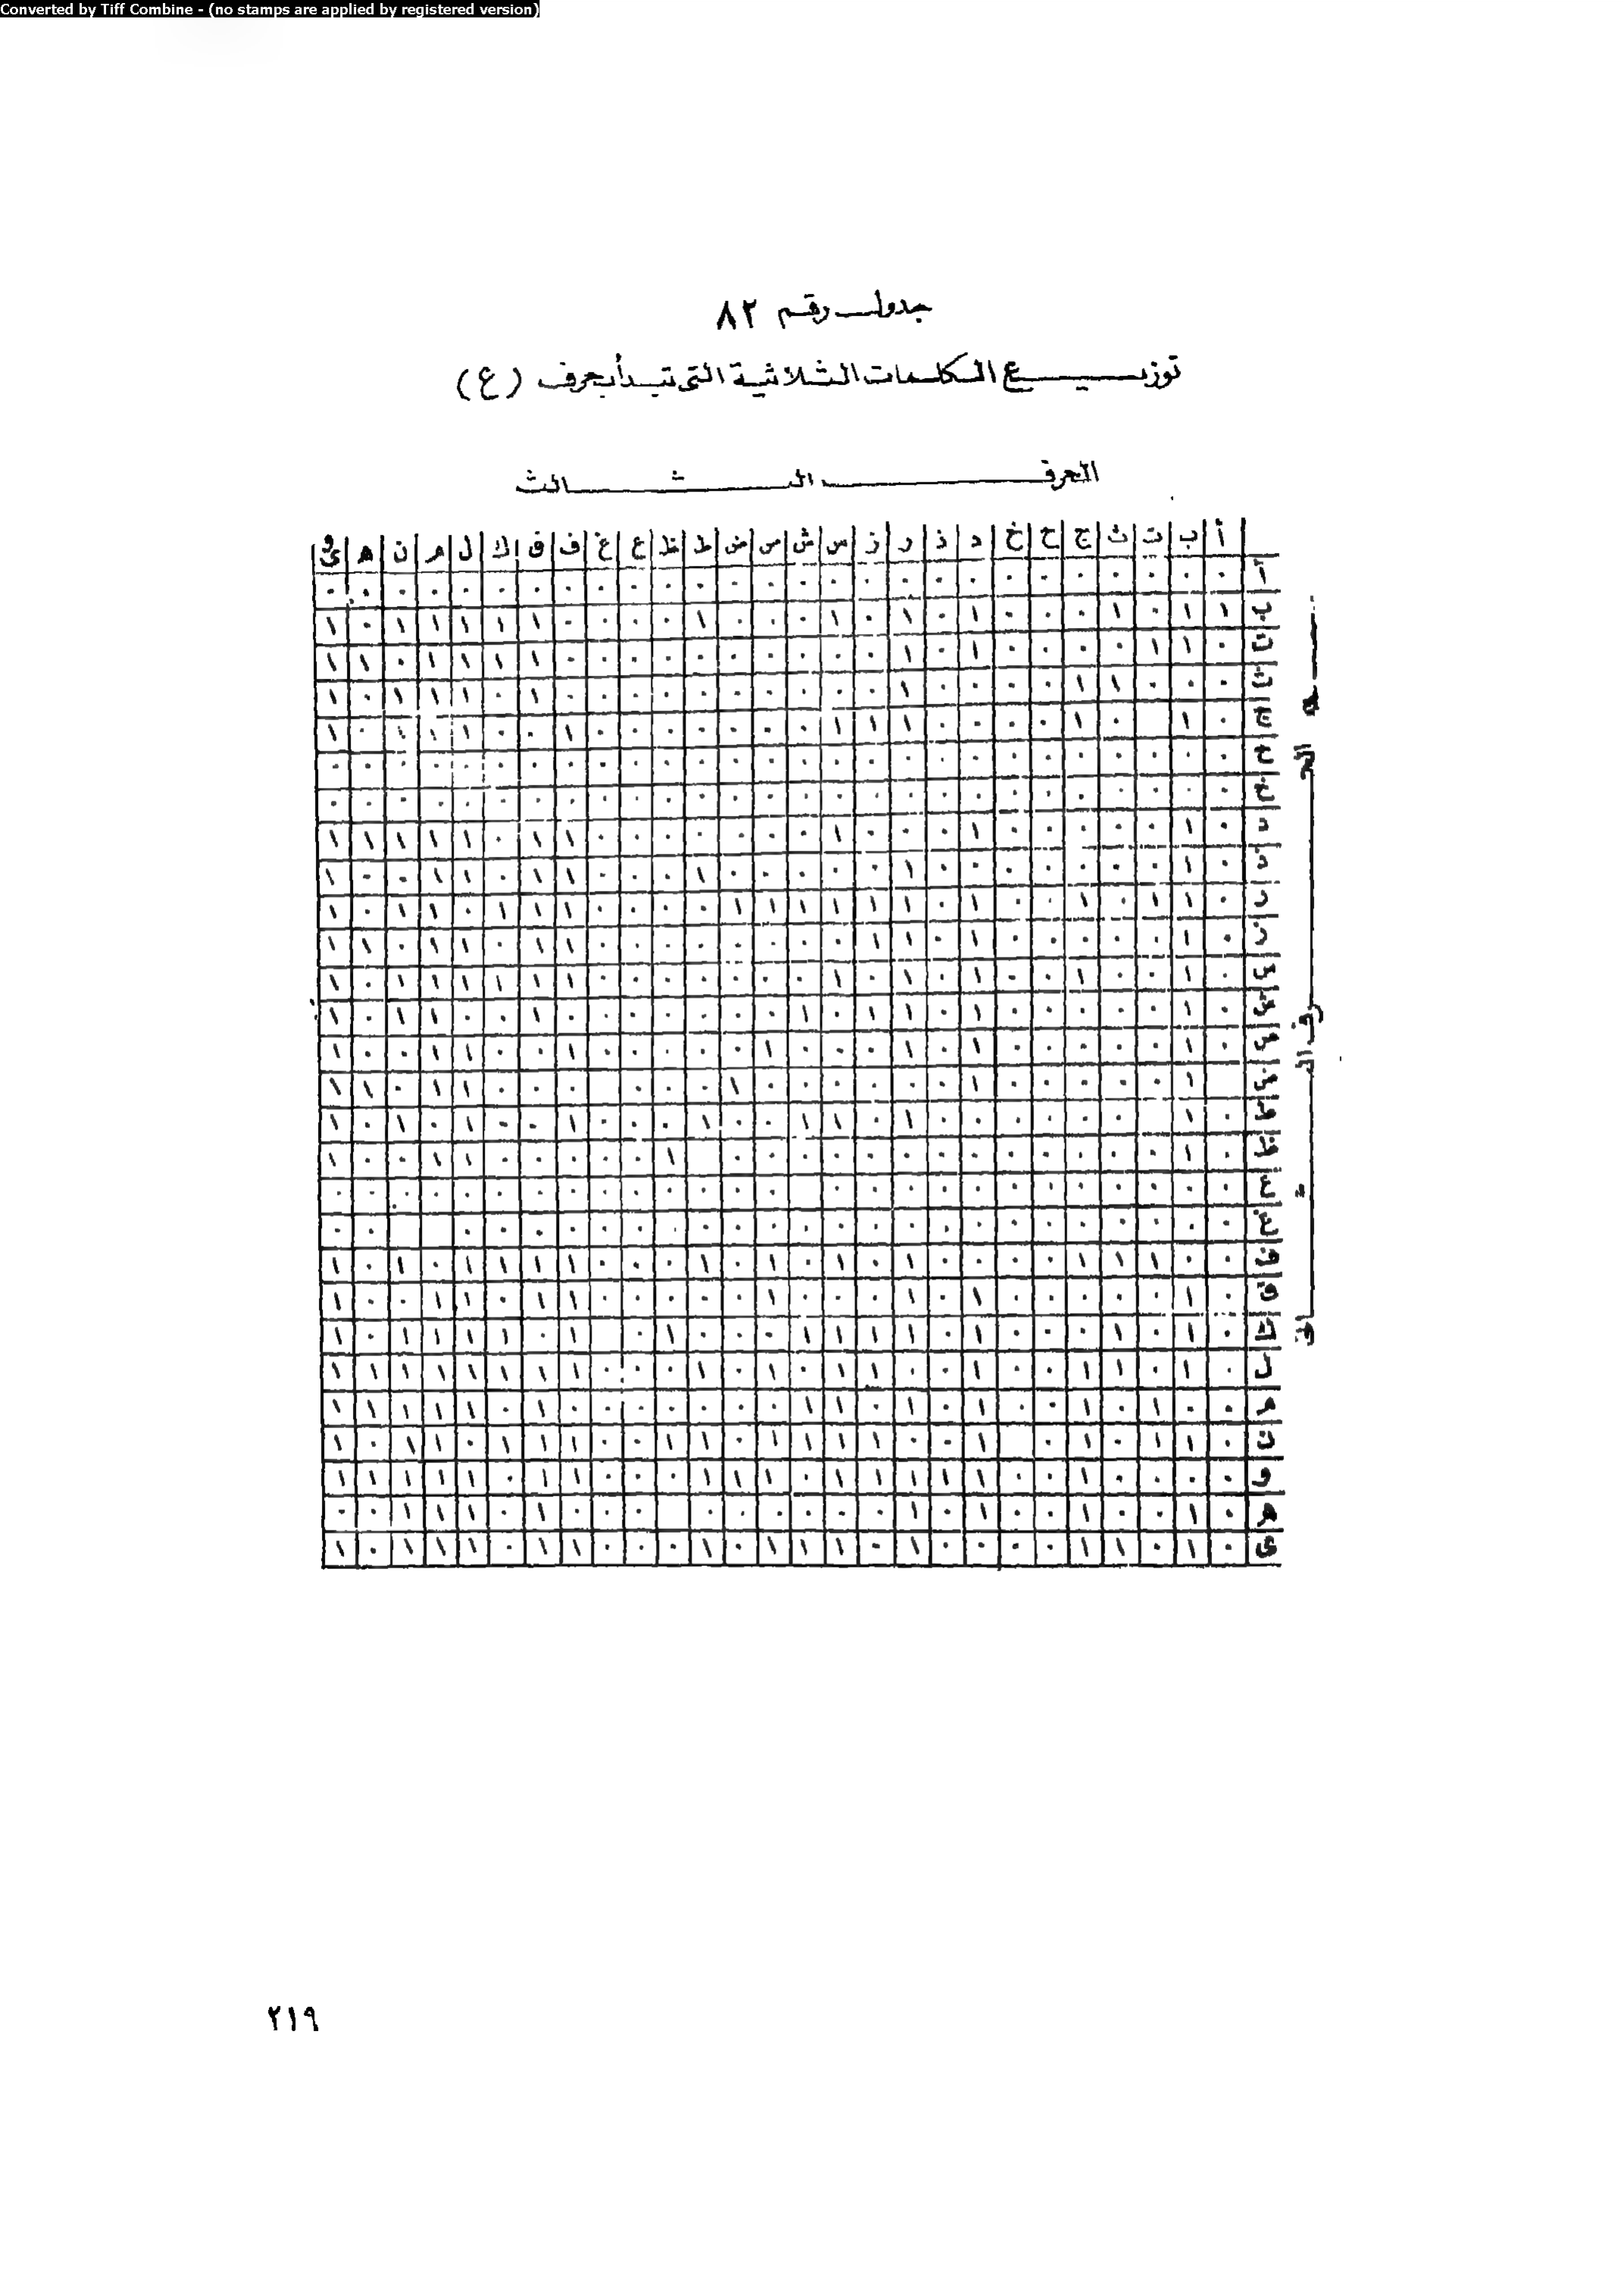 Converted by Tiff Combine - (no stamps are applied by registered version)
جدول رقم ٨٢
توزيع الكلمات الثلاثية التي تبدأ بحرف (ع)
الحرف الثالث
أ ب ت ث ج ح خ د ذ ر ز س ش ص ض ط ظ ع غ ف ق ك ل م ن ه وى
الحرف الثاني
أ ٠ ٠ ٠ ٠ ٠ ٠ ٠ ٠ ٠ ٠ ٠ ٠ ٠ ٠ ٠ ٠ ٠ ٠ ٠ ٠ ٠ ٠ ٠ ٠ ٠ ٠ ٠
ب ١ ١ ٠ ١ ٠ ٠ ٠ ١ ٠ ١ ٠ ١ ٠ ٠ ٠ ١ ٠ ٠ ٠ ٠ ١ ١ ١ ١ ١ ٠ ١
ت ٠ ١ ١ ٠ ٠ ٠ ٠ ١ ٠ ١ ٠ ٠ ٠ ٠ ٠ ٠ ٠ ٠ ٠ ٠ ١ ١ ١ ١ ٠ ١ ١
ث ٠ ٠ ٠ ١ ١ ٠ ٠ ٠ ٠ ١ ٠ ٠ ٠ ٠ ٠ ٠ ٠ ٠ ٠ ٠ ١ ٠ ١ ١ ١ ٠ ١
ج ٠ ١ ٠ ٠ ١ ٠ ٠ ٠ ٠ ١ ١ ١ ٠ ٠ ٠ ٠ ٠ ٠ ٠ ١ ٠ ٠ ١ ١ ١ ٠ ١
ح ٠ ٠ ٠ ٠ ٠ ٠ ٠ ٠ ٠ ٠ ٠ ٠ ٠ ٠ ٠ ٠ ٠ ٠ ٠ ٠ ٠ ٠ ٠ ٠ ٠ ٠ ٠
خ ٠ ٠ ٠ ٠ ٠ ٠ ٠ ٠ ٠ ٠ ٠ ٠ ٠ ٠ ٠ ٠ ٠ ٠ ٠ ٠ ٠ ٠ ٠ ٠ ٠ ٠ ٠
د ٠ ١ ٠ ٠ ٠ ٠ ٠ ١ ٠ ٠ ٠ ١ ٠ ٠ ٠ ٠ ٠ ٠ ٠ ١ ١ ٠ ١ ١ ١ ١ ١
ذ ٠ ١ ٠ ٠ ٠ ٠ ٠ ٠ ٠ ١ ٠ ٠ ٠ ٠ ٠ ١ ٠ ٠ ٠ ١ ١ ٠ ١ ١ ٠ ٠ ١
ر ٠ ١ ١ ٠ ١ ٠ ٠ ١ ٠ ١ ١ ١ ١ ١ ١ ٠ ٠ ٠ ٠ ١ ١ ١ ٠ ١ ١ ٠ ١
ز ٠ ١ ٠ ٠ ٠ ٠ ٠ ١ ٠ ١ ١ ٠ ٠ ٠ ٠ ٠ ٠ ٠ ٠ ١ ١ ٠ ١ ١ ٠ ١ ١
س ٠ ١ ٠ ٠ ١ ٠ ٠ ١ ٠ ١ ٠ ١ ٠ ٠ ٠ ٠ ٠ ٠ ٠ ١ ١ ١ ١ ١ ١ ٠ ١
ش ٠ ١ ٠ ٠ ٠ ٠ ٠ ١ ٠ ١ ١ ٠ ١ ٠ ٠ ٠ ٠ ٠ ٠ ٠ ١ ٠ ٠ ١ ١ ٠ ١
ص ٠ ١ ٠ ٠ ٠ ٠ ٠ ١ ٠ ١ ٠ ٠ ٠ ١ ٠ ٠ ٠ ٠ ٠ ١ ٠ ٠ ١ ١ ٠ ٠ ١
ض ١ ٠ ٠ ٠ ٠ ٠ ١ ٠ ٠ ٠ ٠ ٠ ٠ ١ ٠ ٠ ٠ ٠ ٠ ٠ ٠ ١ ١ ٠ ١ ١
ط ٠ ١ ٠ ٠ ٠ ٠ ٠ ٠ ٠ ١ ٠ ١ ١ ٠ ٠ ١ ٠ ٠ ٠ ١ ٠ ٠ ١ ٠ ١ ٠ ١
ظ ٠ ١ ٠ ٠ ٠ ٠ ٠ ٠ ٠ ٠ ٠ ٠ ٠ ٠ ٠ ١ ٠ ٠ ٠ ٠ ٠ ١ ١ ٠ ٠ ١
ع ٠ ٠ ٠ ٠ ٠ ٠ ٠ ٠ ٠ ٠ ٠ ٠ ٠ ٠ ٠ ٠ ٠ ٠ ٠ ٠ ٠ ٠ ٠ ٠ ٠ ٠
غ ٠ ٠ ٠ ٠ ٠ ٠ ٠ ٠ ٠ ٠ ٠ ٠ ٠ ٠ ٠ ٠ ٠ ٠ ٠ ٠ ٠ ٠ ٠ ٠ ٠
ف ٠ ٠ ١ ١ ١ ٠ ٠ ٠ ٠ ١ ٠ ١ ٠ ١ ٠ ١ ٠ ٠ ٠ ١ ١ ١ ١ ٠ ١ ٠ ١
ق ٠ ١ ٠ ٠ ٠ ٠ ٠ ١ ٠ ١ ٠ ٠ ٠ ١ ٠ ٠ ٠ ٠ ٠ ١ ١ ٠ ١ ١ ٠ ٠ ١
ك ٠ ١ ٠ ١ ٠ ٠ ٠ ١ ٠ ١ ١ ١ ١ ٠ ٠ ٠ ١ ٠ ١ ٠ ١ ١ ١ ١ ٠ ١
ل ٠ ١ ٠ ١ ١ ٠ ٠ ١ ٠ ٠ ١ ١ ٠ ١ ٠ ١ ٠ ٠ ٠ ١ ١ ١ ١ ١ ١ ١ ١
م ٠ ٠ ١ ٠ ١ ٠ ٠ ١ ٠ ١ ٠ ١ ١ ٠ ٠ ٠ ٠ ٠ ٠ ٠ ١ ٠ ١ ١ ١ ١ ١
ن ٠ ١ ١ ٠ ١ ٠ ١ ٠ ٠ ١ ١ ١ ١ ٠ ١ ١ ٠ ٠ ١ ١ ١ ٠ ١ ١ ٠ ١
و ٠ ٠ ٠ ٠ ١ ٠ ٠ ١ ١ ١ ١ ١ ٠ ١ ١ ١ ٠ ٠ ٠ ١ ١ ٠ ١ ١ ١ ١ ١
ه ٠ ١ ٠ ٠ ١ ٠ ٠ ١ ٠ ١ ٠ ٠ ٠ ٠ ٠ ٠ ٠ ٠ ٠ ١ ٠ ١ ١ ١ ٠ ٠
ى ٠ ١ ٠ ١ ١ ٠ ٠ ٠ ٠ ١ ٠ ١ ١ ١ ٠ ١ ٠ ٠ ٠ ١ ١ ٠ ١ ١ ١ ٠ ١
٢١٩